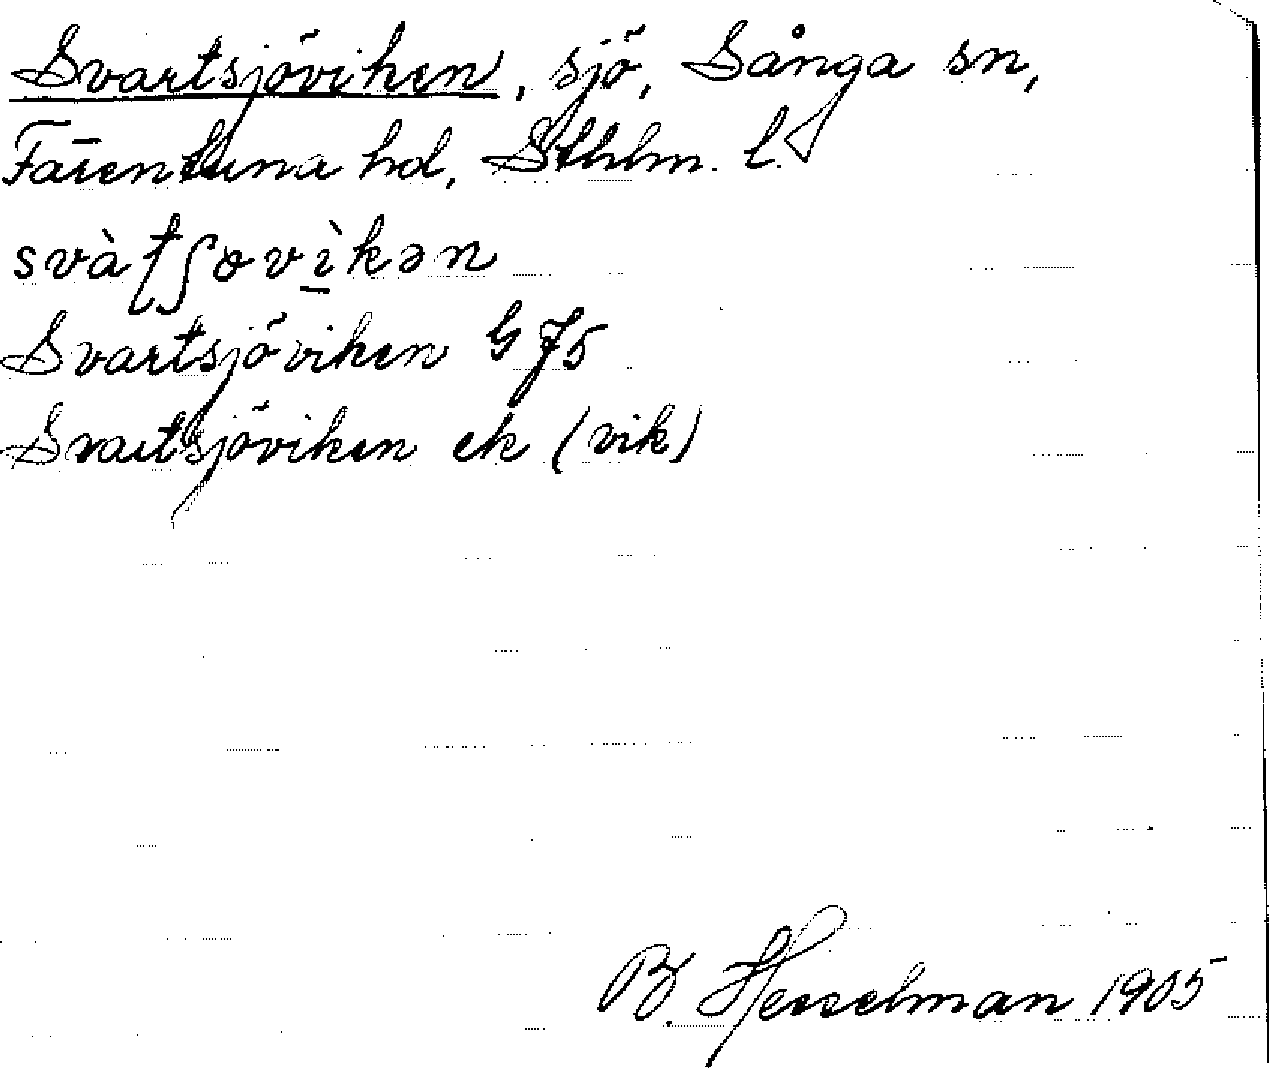 Svartsjöviken, sjö, Sånga sn,
Färentuna hd, Sthlm. l.
svàʈʃovìkən
Svartsjöviken G 75
Svartsjöviken ek (vik)
B. Hesselman 1905